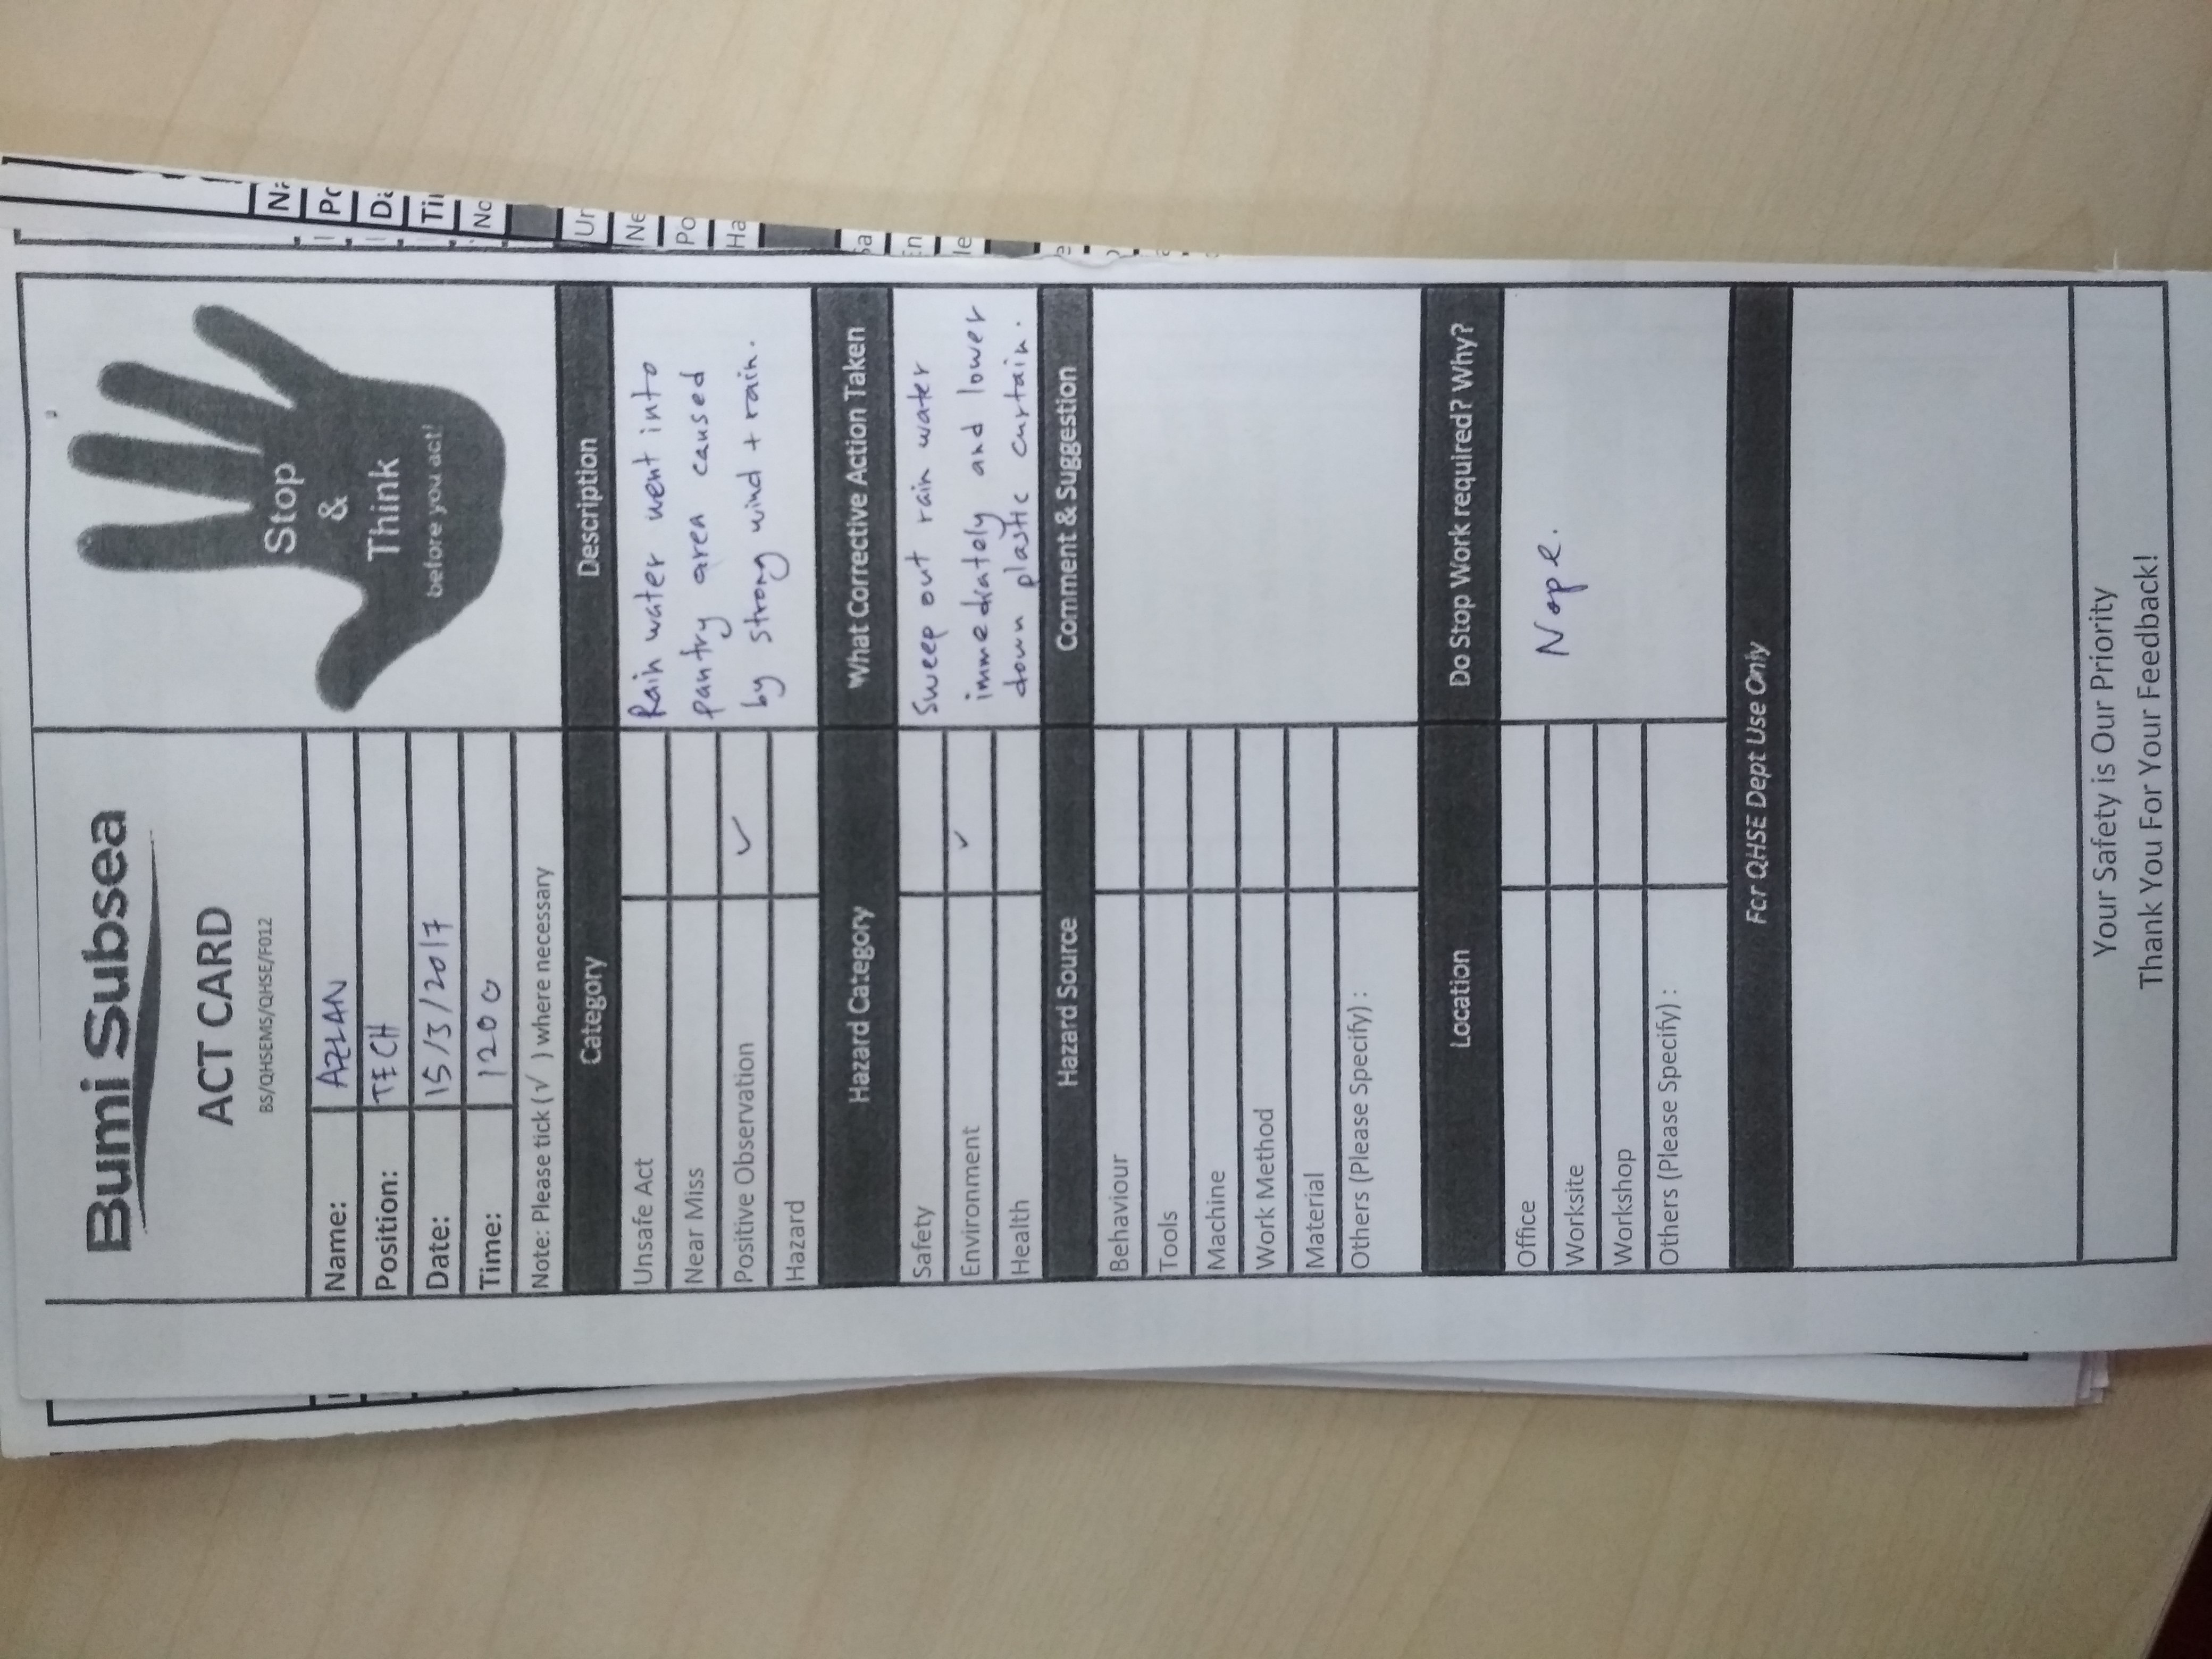 Bumi Subsea
ACT CARD
BS/QHSEMS/QHSE/F012
Stop
&
Think
before you act!
Name: AZLAN
Position: TECH
Date: 15/3/2017
Time: 1200
Note: Please tick (√ ) where necessary
Category
Description
Unsafe Act
Near Miss
Positive Observation ✓
Hazard
Rain water went into
pantry area caused
by strong wind + rain.
Hazard Category
What Corrective Action Taken
Safety
Environment ✓
Health
Sweep out rain water
immediately and lower
down plastic curtain.
Hazard Source
Comment & Suggestion
Behaviour
Tools
Machine
Work Method
Material
Others (Please Specify) :
Location
Do Stop Work required? Why?
Office
Worksite
Workshop
Others (Please Specify) :
Nope.
For QHSE Dept Use Only
Your Safety is Our Priority
Thank You For Your Feedback!